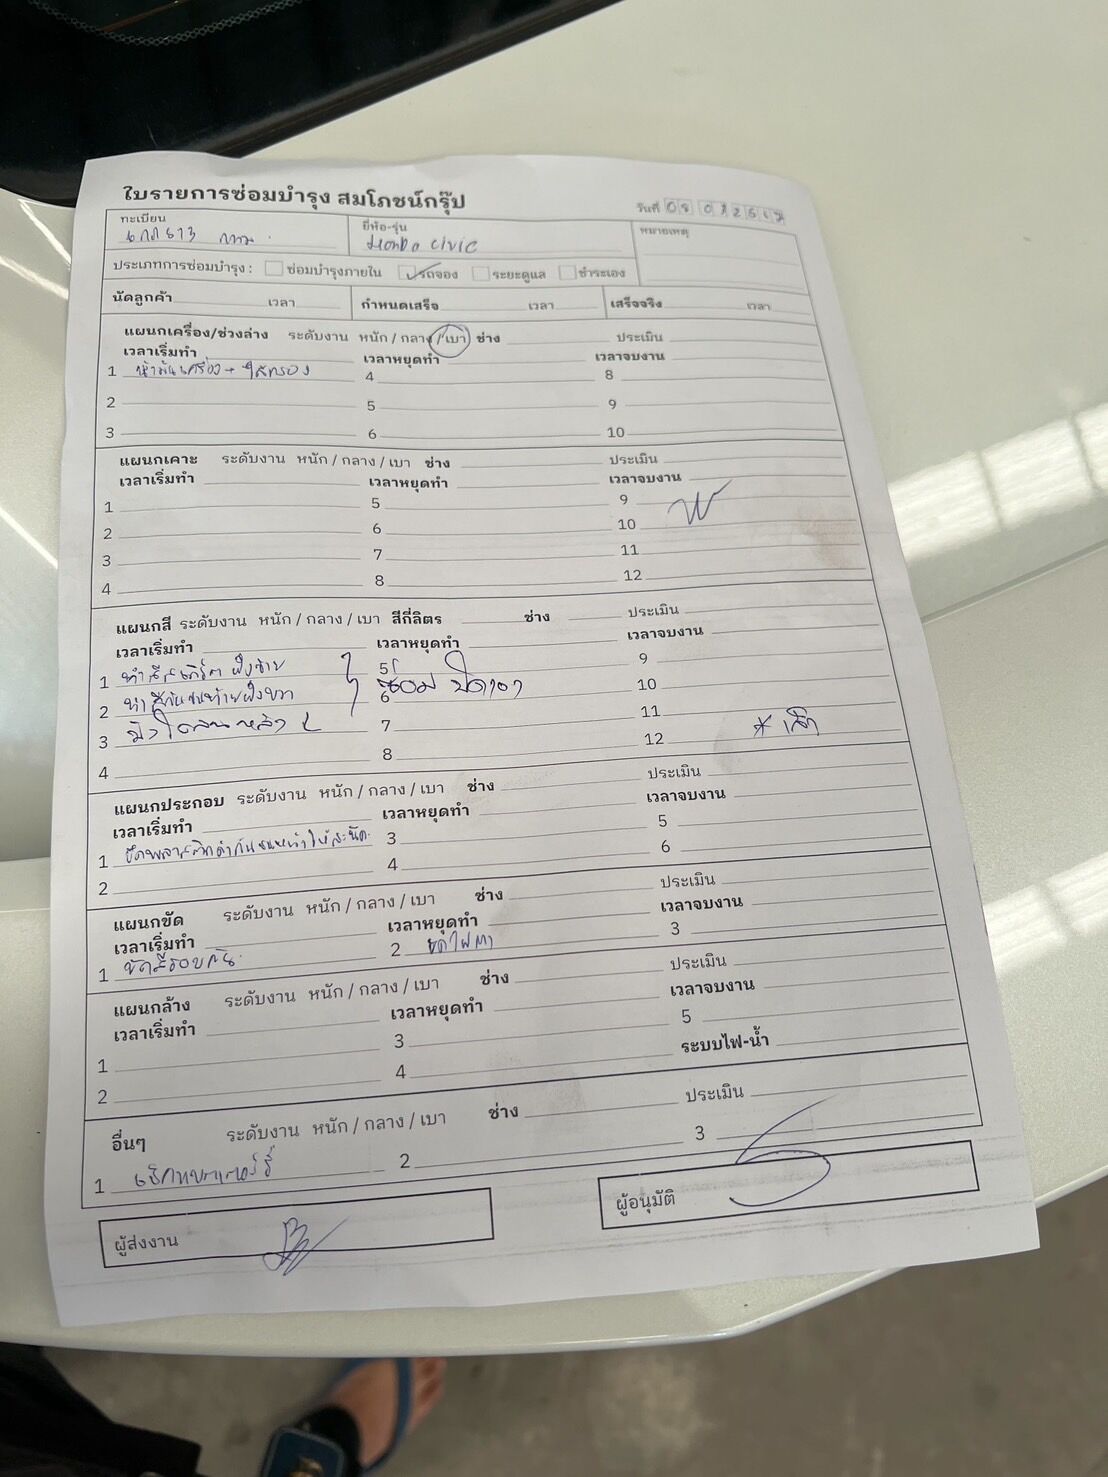 ใบรายการซ่อมบำรุง สมโภชน์กรุ๊ป
วันที่
ทะเบียน ยี่ห้อ-รุ่น หมายเหตุ
กทม. Honda civic
ประเภทการซ่อมบำรุง : ซ่อมบำรุงภายใน รถจอง ระยะดูแล ชำระเอง
นัดลูกค้า เวลา กำหนดเสร็จ เวลา เสร็จจริง เวลา
แผนกเครื่อง/ช่วงล่าง ระดับงาน หนัก / กลาง / เบา ช่าง ประเมิน
เวลาเริ่มทำ เวลาหยุดทำ เวลาจบงาน
1 น้ำมันเครื่อง + ไส้กรอง 4 8
2 5 9
3 6 10
แผนกเคาะ ระดับงาน หนัก / กลาง / เบา ช่าง ประเมิน
เวลาเริ่มทำ เวลาหยุดทำ เวลาจบงาน
1 5 9
2 6 10
3 7 11
4 8 12
แผนกสี ระดับงาน หนัก / กลาง / เบา สีกี่ลิตร ช่าง ประเมิน
เวลาเริ่มทำ เวลาหยุดทำ เวลาจบงาน
1 ทำสีสเกิร์ต ฝั่งซ้าย 5 9
2 ทำสีกันชนท้ายฝั่งขวา 6 10
3 7 11
4 8 12
แผนกประกอบ ระดับงาน หนัก / กลาง / เบา ช่าง ประเมิน
เวลาเริ่มทำ เวลาหยุดทำ เวลาจบงาน
1 ยึดพลาสติกดำกันชนหน้าให้สนิท 3 5
2 4 6
แผนกขัด ระดับงาน หนัก / กลาง / เบา ช่าง ประเมิน
เวลาเริ่มทำ เวลาหยุดทำ เวลาจบงาน
1 ขัดสีรอบคัน 2 ขัดไฟตา 3
แผนกล้าง ระดับงาน หนัก / กลาง / เบา ช่าง ประเมิน
เวลาเริ่มทำ เวลาหยุดทำ เวลาจบงาน
1 3 5
2 4 ระบบไฟ-น้ำ
อื่นๆ ระดับงาน หนัก / กลาง / เบา ช่าง ประเมิน
1 เช็คแบตเตอร์รี่ 2 3
ผู้ส่งงาน ผู้อนุมัติ